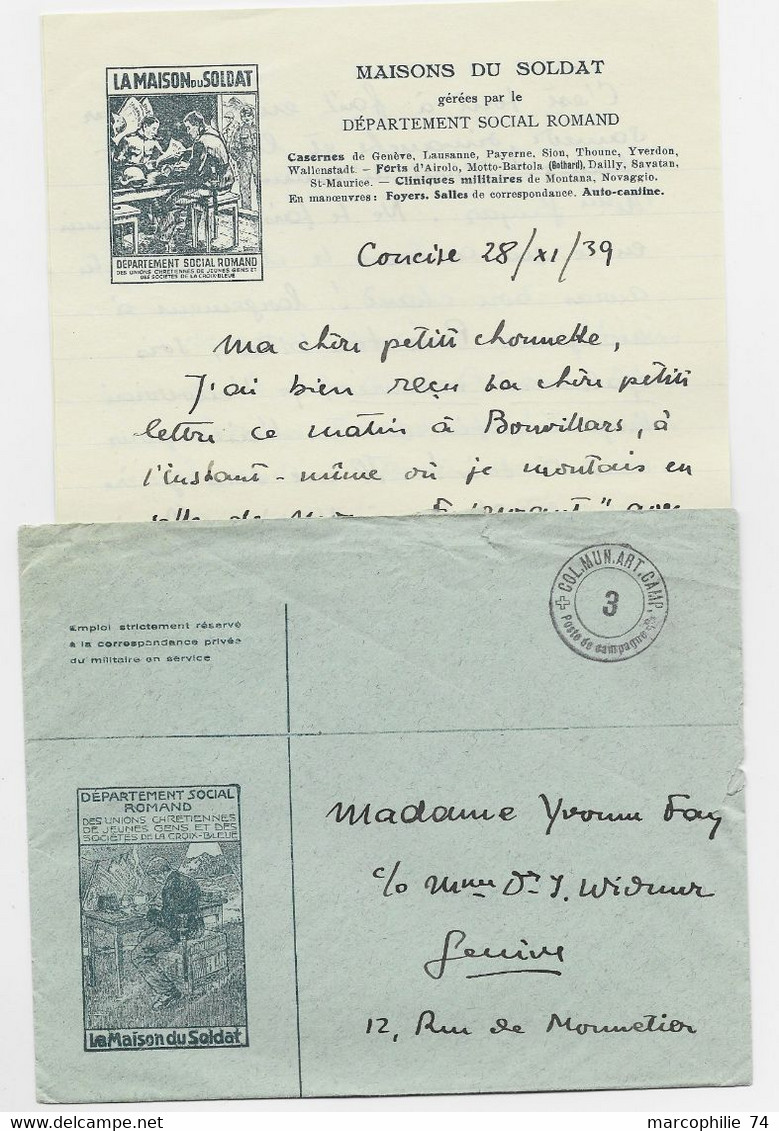 LA MAISON DU SOLDAT
DÉPARTEMENT SOCIAL ROMAND
DES UNIONS CHRETIENNES DE JEUNES GENS ET
DES SOCIETES DE LA CROIX-BLEUE
MAISONS DU SOLDAT
gérées par le
DÉPARTEMENT SOCIAL ROMAND
Casernes de Genève, Lausanne, Payerne, Sion, Thoune, Yverdon,
Wallenstadt. - Forts d'Airolo, Motto-Bartola (Gothard), Dailly, Savatan,
St-Maurice. - Cliniques militaires de Montana, Novaggio.
En manœuvres: Foyers. Salles de correspondance. Auto-cantine.
Concise 28/XI/39
Ma chère petite chounette,
J'ai bien reçu ta chère petite
lettre ce matin à Bonvillars, à
l'instant-même où je montais en
salle de
COL.MUN.ART.CAMP.
3
Poste de campagne
Emploi strictement réservé
à la correspondance privée
du militaire en service
DÉPARTEMENT SOCIAL
ROMAND
DES UNIONS CHRETIENNES
DE JEUNES GENS ET DES
SOCIÉTÉS DE LA CROIX-BLEUE
La Maison du Soldat
Madame Yvonne Fay
c/o Mme Dr J. Widmer
Genève
12, Rue de Monnetier
marcophilie 74